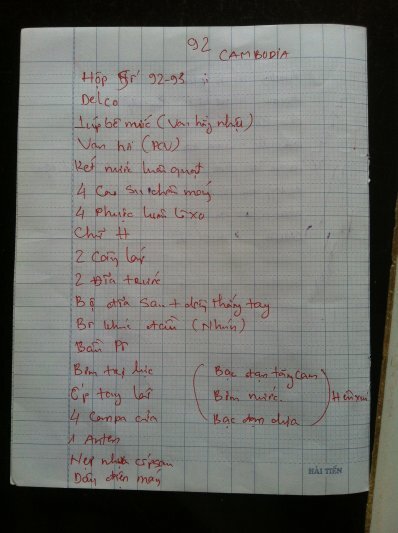 92 CAMBODIA
Hộp số 92-93 :
Delco
bê nước (Van hằng nhiệt)
Van hô (PCV)
Két nước luôn quạt
4 Cao su chân máy
4 Phuộc luôn lò xo
Chữ H
2 Càng lái
2 Đĩa trước
Bộ đĩa sau + dây thắng tay
Bi khúc đầu (Nhún)
Bầu Pi
Bơm trợ lực
Cốp tay lái
4 Compa cửa
1 Anten
Nẹp nhựa cốp sau
Dây điện máy
(Bạc đạn tăng cam
Bơm nước.
Bạc đạn dựa) Hên xui
HẢI TIẾN